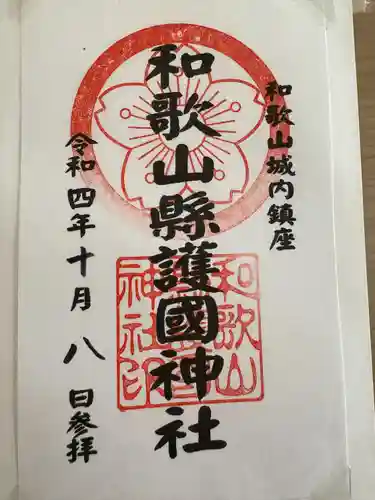 和歌山城内鎮座
和歌山縣護國神社
令和四年十月八日参拝